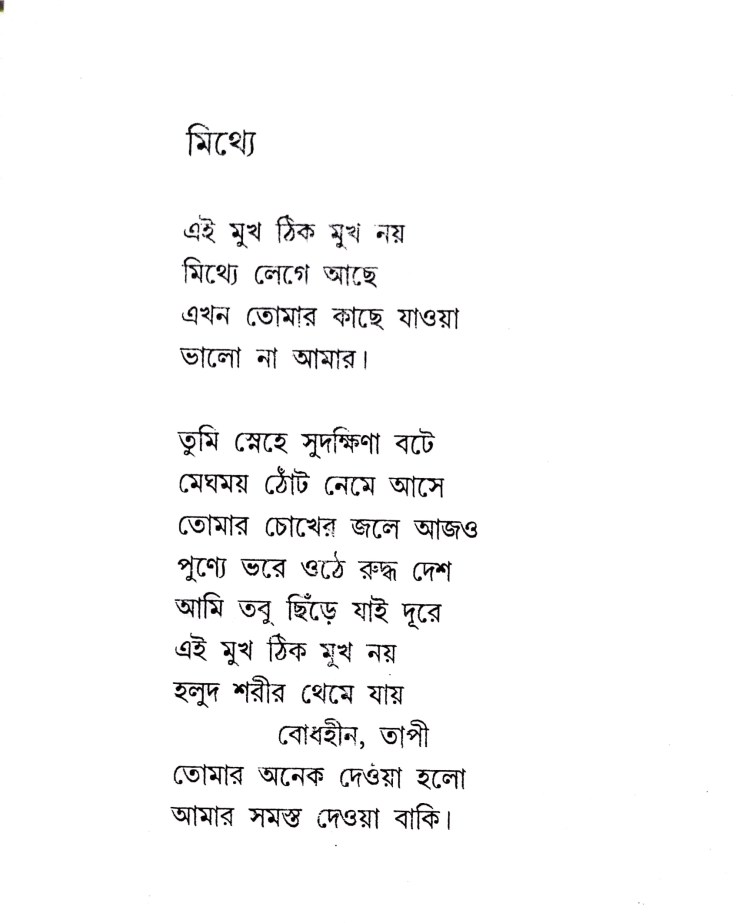 মিথ্যে
এই মুখ ঠিক মুখ নয়
মিথ্যে লেগে আছে
এখন তোমার কাছে যাওয়া
ভালো না আমার।
তুমি স্নেহে সুদক্ষিণা বটে
মেঘময় ঠোঁট নেমে আসে
তোমার চোখের জলে আজও
পুণ্যে ভরে ওঠে রুদ্ধ দেশ
আমি তবু ছিঁড়ে যাই দূরে
এই মুখ ঠিক মুখ নয়
হলুদ শরীর থেমে যায়
বোধহীন, তাপী
তোমার অনেক দেওয়া হলো
আমার সমস্ত দেওয়া বাকি।